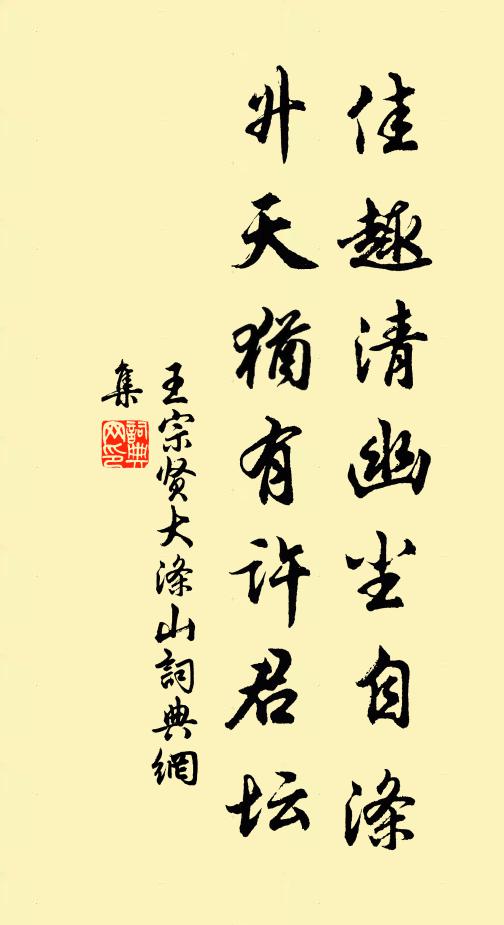 佳趣清幽尘自涤
升天犹有许君坛
王宗贤大涤山詞典網
集
詞典
网印